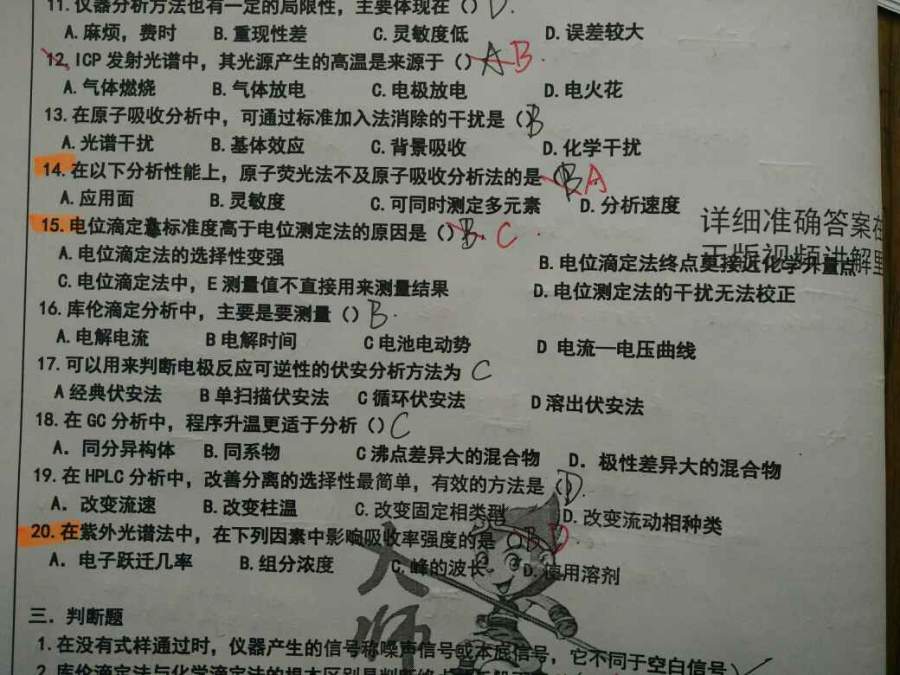 11. 仪器分析方法也有一定的局限性，主要体现在（）D.
A. 麻烦，费时 B. 重现性差 C. 灵敏度低 D. 误差较大
12. ICP 发射光谱中，其光源产生的高温是来源于（）A B.
A. 气体燃烧 B. 气体放电 C. 电极放电 D. 电火花
13. 在原子吸收分析中，可通过标准加入法消除的干扰是（）B
A. 光谱干扰 B. 基体效应 C. 背景吸收 D. 化学干扰
14. 在以下分析性能上，原子荧光法不及原子吸收分析法的是 B A
A. 应用面 B. 灵敏度 C. 可同时测定多元素 D. 分析速度
15. 电位滴定 标准度高于电位测定法的原因是（）B. C.
A. 电位滴定法的选择性变强 B. 电位滴定法终点更接近化学计量点
C. 电位滴定法中，E 测量值不直接用来测量结果 D. 电位测定法的干扰无法校正
详细准确答案在
正版视频讲解里
16. 库伦滴定分析中，主要是要测量（）B.
A. 电解电流 B 电解时间 C 电池电动势 D 电流—电压曲线
17. 可以用来判断电极反应可逆性的伏安分析方法为 C
A 经典伏安法 B 单扫描伏安法 C 循环伏安法 D 溶出伏安法
18. 在 GC 分析中，程序升温更适于分析（）C
A. 同分异构体 B. 同系物 C 沸点差异大的混合物 D. 极性差异大的混合物
19. 在 HPLC 分析中，改善分离的选择性最简单，有效的方法是（）D.
A. 改变流速 B. 改变柱温 C. 改变固定相类型 D. 改变流动相种类
20. 在紫外光谱法中，在下列因素中影响吸收率强度的是（）B D
A. 电子跃迁几率 B. 组分浓度 C. 峰的波长 D. 使用溶剂
大师
三. 判断题
1. 在没有式样通过时，仪器产生的信号称噪声信号或本底信号，它不同于空白信号）
2. 库伦滴定法与化学滴定法的根本区别是判断终点